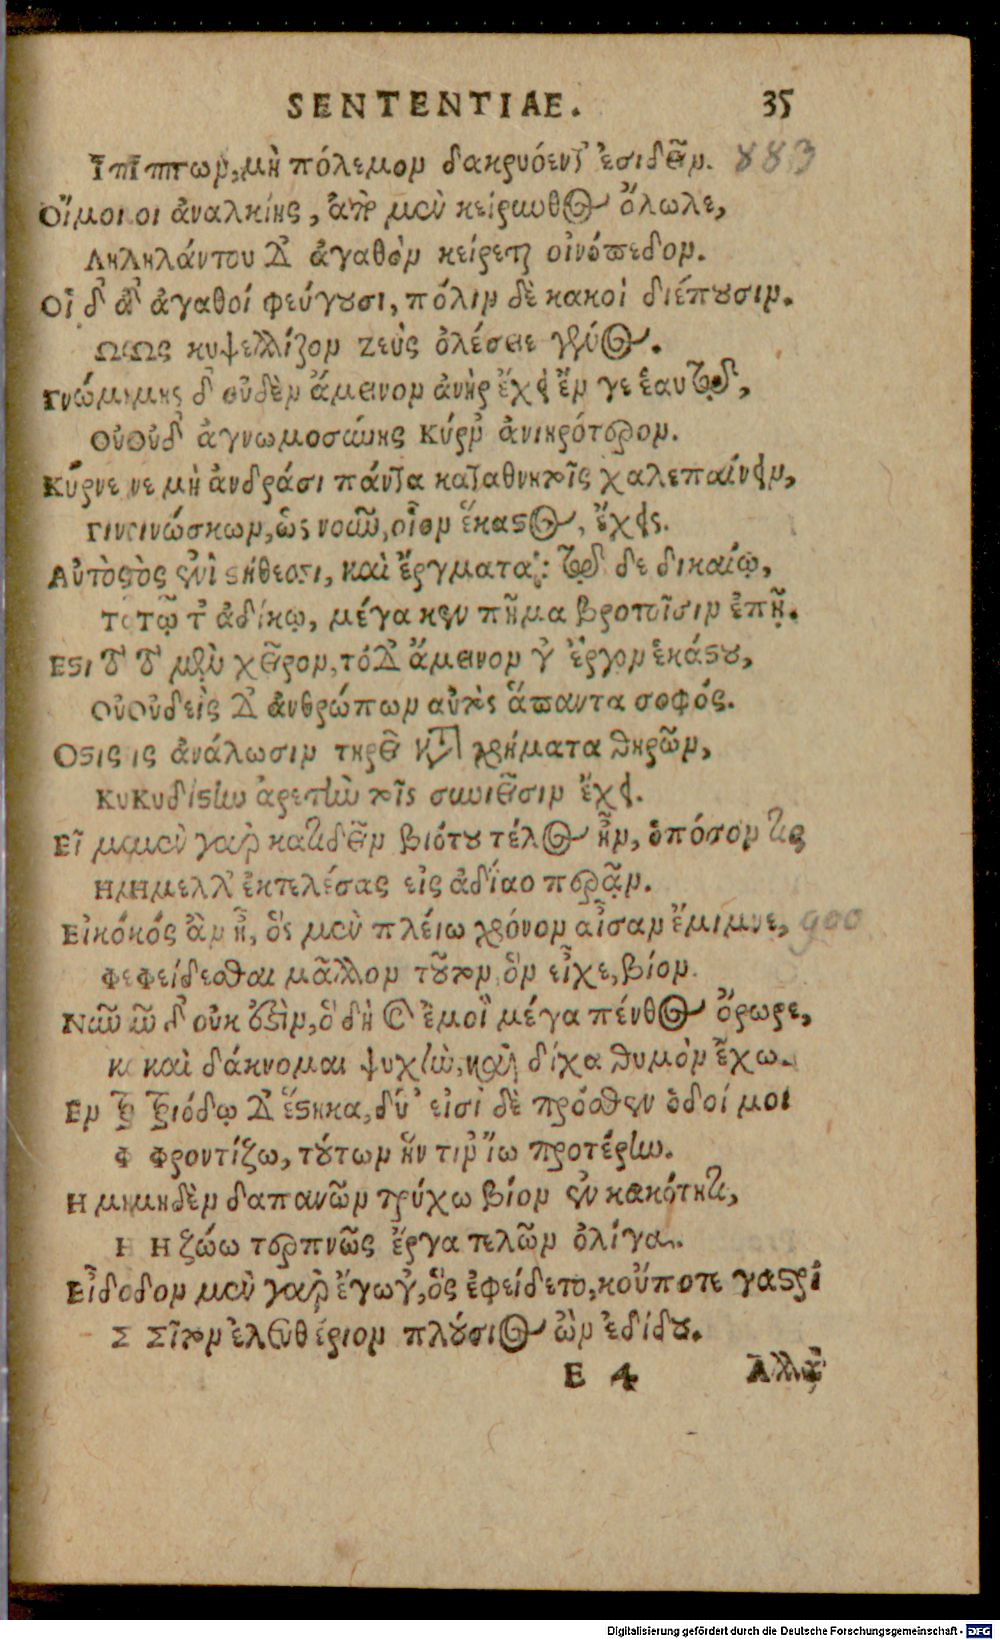 SENTENTIAE. 35
Ἵππων, μὴ πόλεμον δακρυόεντ' ἐσιδεῖν. 883
Οἴμοι ἀναλκίης, ἀπὸ μὲν κείρινθος ὄλωλε,
Ληλάντου δ' ἀγαθὸν κείρεται οἰνόπεδον.
Οἱ δ' ἀγαθοί φεύγουσι, πόλιν δὲ κακοὶ διέπουσιν.
Ὡς κυψελλίζον ζεὺς ὀλέσειε γένος.
Γνώμης δ' οὐδὲν ἄμεινον ἀνὴρ ἔχει ἔν γε ἑαυτῷ,
Οὐδ' ἀγνωμοσύνης Κύρν' ἀνιηρότερον.
Κύρνε μὴ ἀνδράσι πάντα καταθνητοῖς χαλεπαίνειν,
Γινώσκων, ὡς νοῦν, οἷον ἕκαστος, ἔχει.
Αὐτὸς ἐνὶ στήθεσσι, καὶ ἔργματα: τῷ δε δικαίῳ,
Τῷ τ' ἀδίκῳ, μέγα κεν πῆμα βροτοῖσιν ἐπῇ.
Εστι τὸ μὲν χεῖρον, τόδ' ἄμεινον γ' ἔργον ἑκάστου,
Οὐδεὶς δ' ἀνθρώπων αὐτὸς ἅπαντα σοφός.
Οστις ἀνάλωσιν τηρεῖ κατὰ χρήματα θηρῶν,
Κυδίστην ἀρετὴν τοῖς συνιεῖσιν ἔχει.
Εἰ μὲν γὰρ κατιδεῖν βιότου τέλος ἦν, ὁπόσον τις
Ημελλ' ἐκτελέσας εἰς ἀΐδαο περᾷν.
Εἰκός ἂν ἦ, ὃς μὲν πλείω χρόνον αἶσαν ἔμιμνε, 900
Φείδεσθαι μᾶλλον τοῦτον ὃν εἶχε, βίον.
Νῦν δ' οὐκ ἔστιν, ὃ δὴ καὶ ἐμοὶ μέγα πένθος ὄρωρε,
καὶ δάκνομαι ψυχὴν, καὶ δίχα θυμὸν ἔχω.
Εν τριόδῳ δ' ἕστηκα, δύ' εἰσὶ δὲ πρόσθεν ὁδοί μοι
Φροντίζω, τούτων ἥν τιν' ἴω προτέρην.
Η μηδὲν δαπανῶν τρύχω βίον ἐν κακότητι,
Η ζώω τερπνῶς ἔργα τελῶν ὀλίγα.
Εἶδον μὲν γὰρ ἔγωγ', ὃς ἐφείδετο, κοὔποτε γαστρὶ
Σῖτον ἐλευθέριον πλούσιος ὢν ἐδίδου.
E 4 Αλλὰ
Digitalisierung gefördert durch die Deutsche Forschungsgemeinschaft - DFG